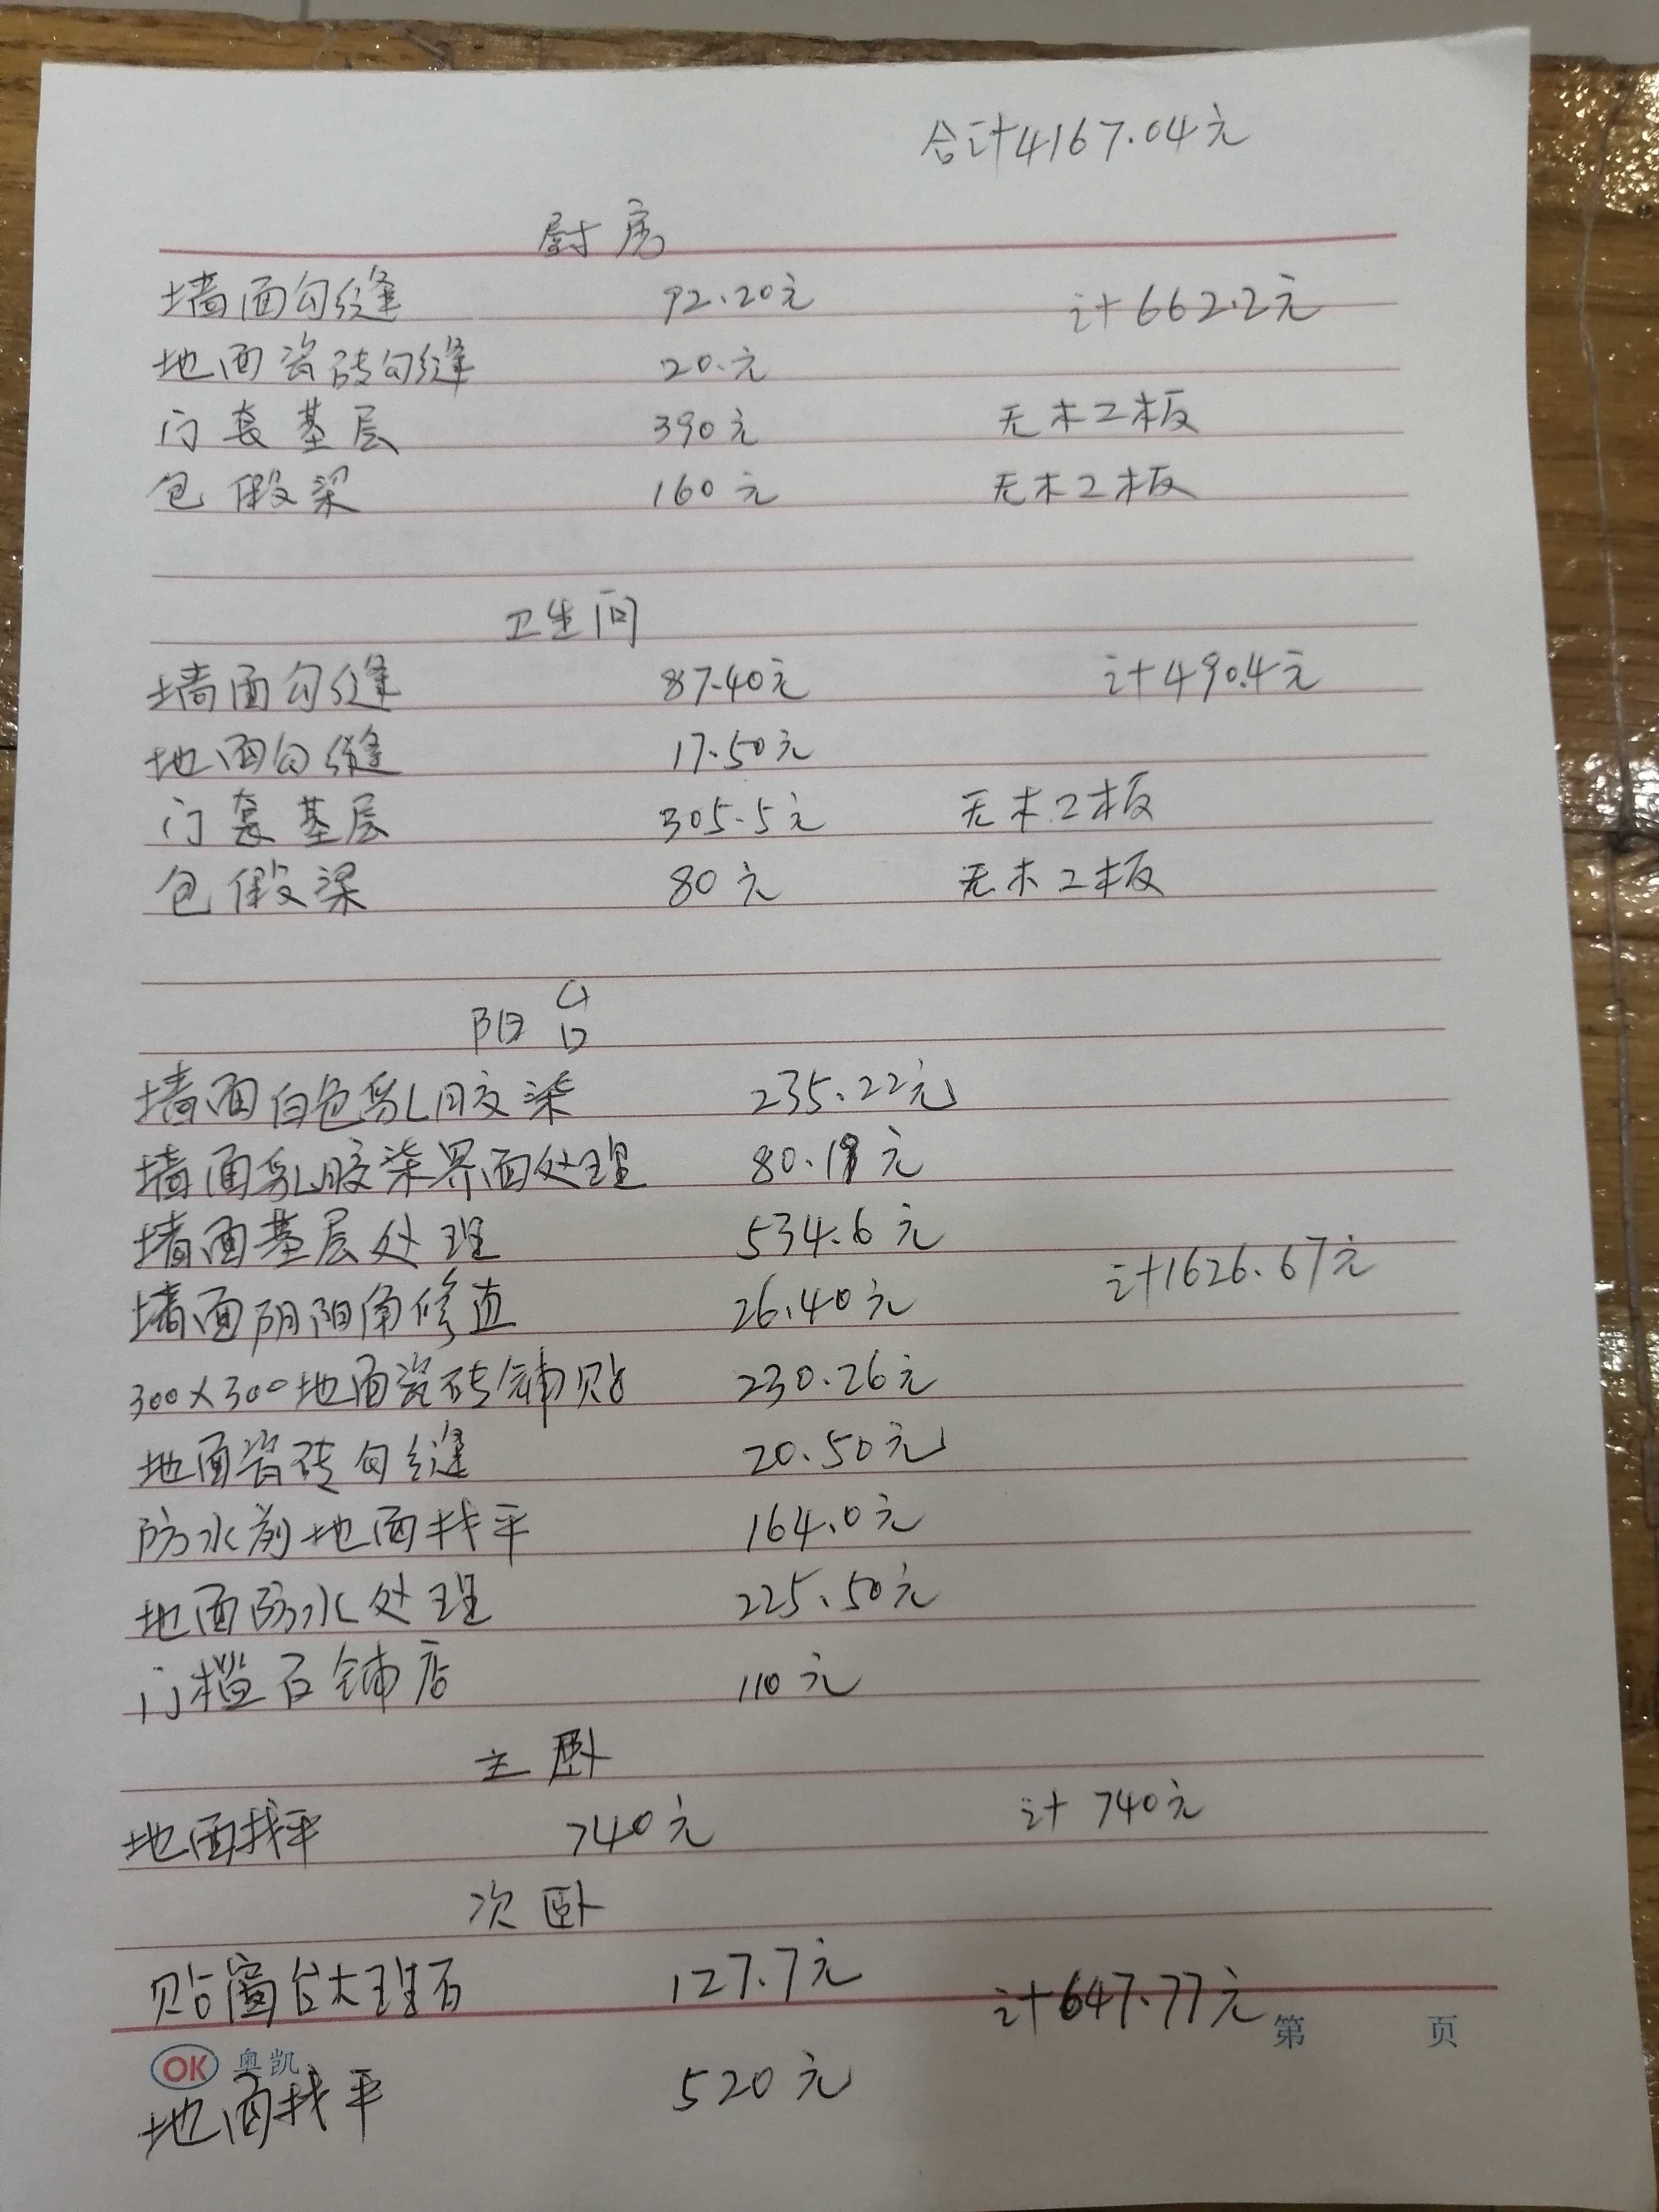 合计4167.04元
厨房
墙面勾缝 92.20元 计662.2元
地面瓷砖勾缝 20.元
门套基层 390元 无木工板
包假梁 160元 无木工板
卫生间
墙面勾缝 87.40元 计490.4元
地面勾缝 17.50元
门套基层 305.5元 无木工板
包假梁 80元 无木工板
阳台
墙面白色乳胶柒 235.22元
墙面乳胶柒界面处理 80.19元
墙面基层处理 534.6元
计1626.67元
墙面阴阳角修直 26.40元
300×300地面瓷砖铺贴 230.26元
地面瓷砖勾缝 20.50元
防水前地面找平 164.0元
地面防水处理 225.50元
门槛石铺店 110元
主卧
地面找平 740元 计740元
次卧
贴窗台大理石 127.7元 计647.77元
第 页
OK 奥凯
地面找平 520元